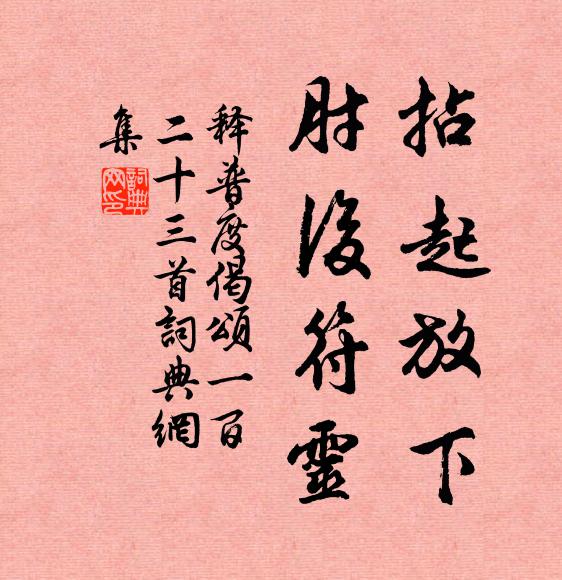 拈起放下
肘後符靈
释普度偈頌一百
二十三首詞典網
集
詞典
网印